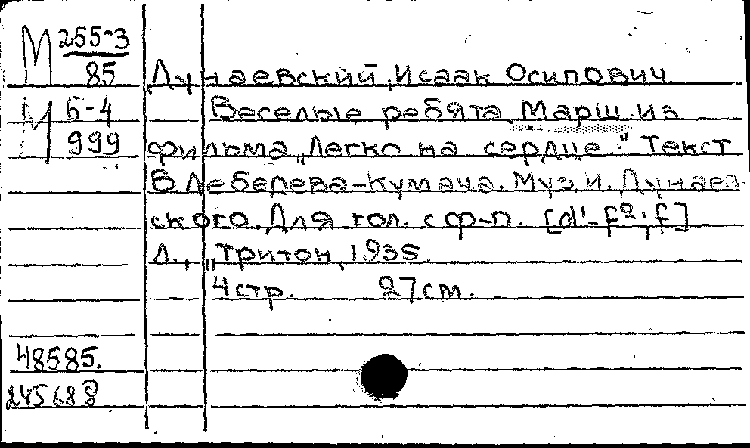 М 255-3
85
Дунаевский, Исаак Осипович
М Б-4
999
Веселые ребята. Марш из
фильма „Легко на сердце." Текст
В. Лебедева-Кумача. Муз. И. Дунаев-
ского. Для гол. с ф-п. [d'-f²; f]
Л., „Тритон, 1935.
4 стр. 27 см.
48585.
245688